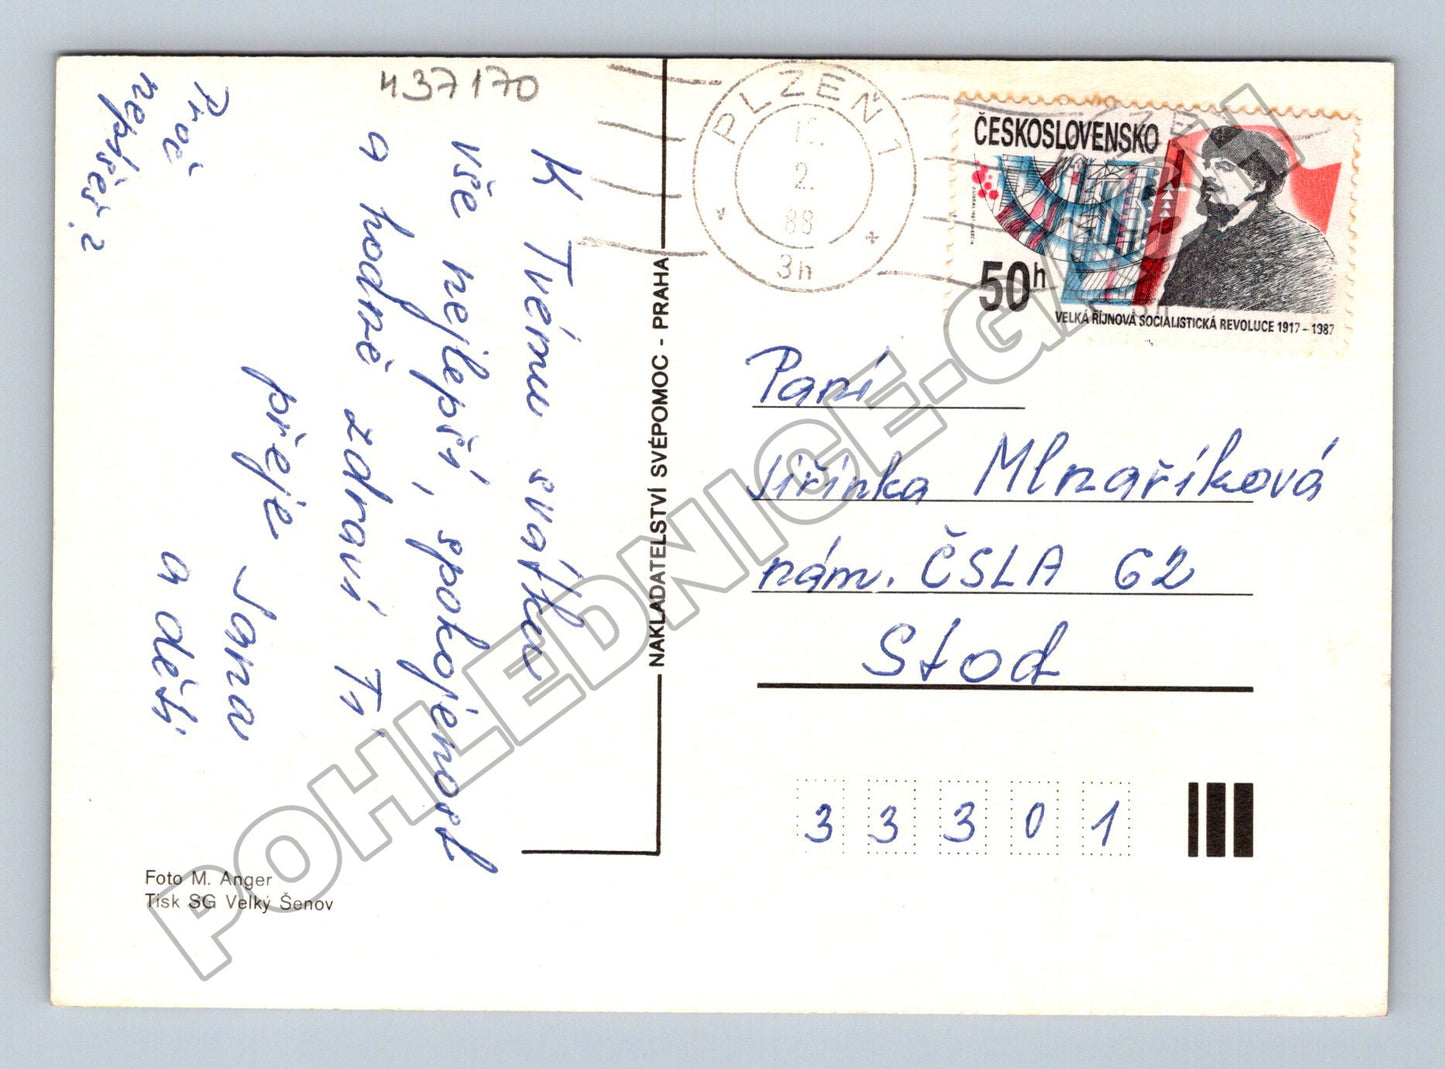 437170
Proč
nepíšeš?
K Tvému svátku
vše nejlepší, spokojenost
a hodně zdraví Ti
přeje Jana
a děti
Foto M. Anger
Tisk SG Velký Šenov
NAKLADATELSTVÍ SVÉPOMOC - PRAHA
PLZEŇ 1
2.
88
3h
ČESKOSLOVENSKO
50h
VELKÁ ŘÍJNOVÁ SOCIALISTICKÁ REVOLUCE 1917-1987
Paní
Jiřinka Mlnaříková
nám. ČSLA 62
Stod
33301
POHLEDNICE-GALOCH